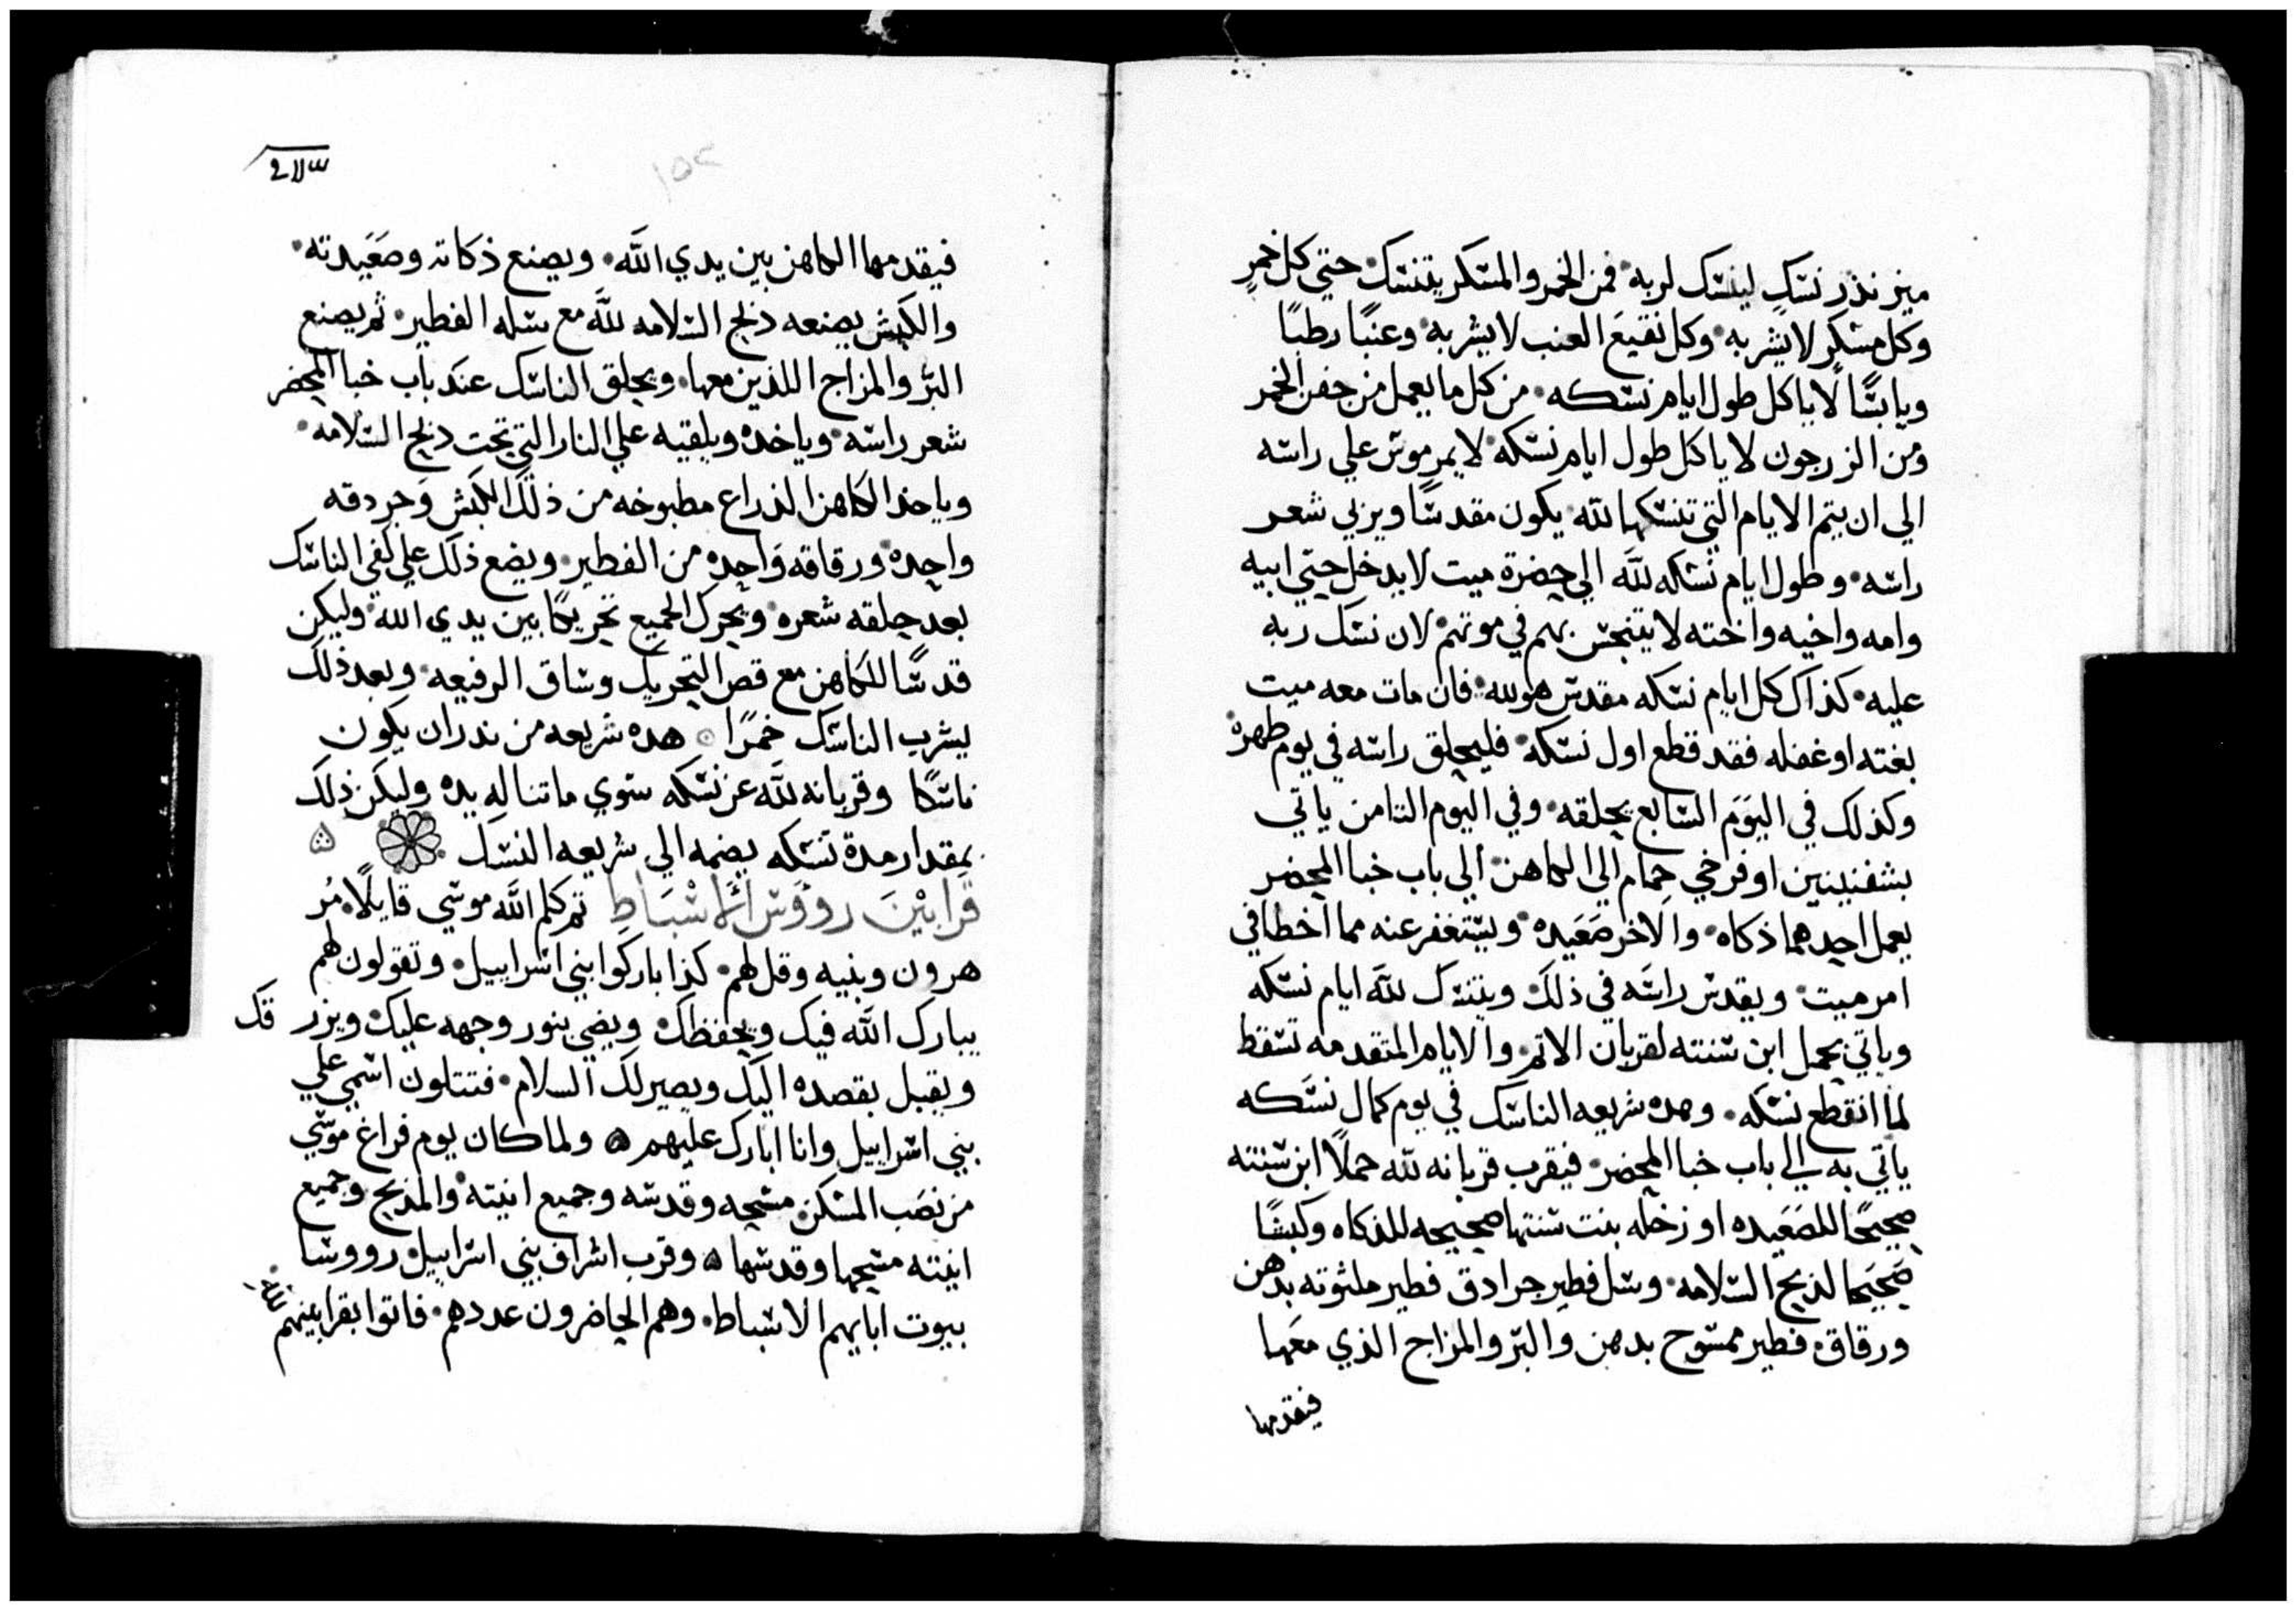 ميز نذر نسك لينسك لربه فمن الخمر والمسكر يتنسك حتي كل خمرٍ
وكل مسكرٍ لا يشربه وكل نقيع العنب لا يشربه وعنبًا رطبًا
ويابسًا لا ياكل طول ايام نسكه من كل ما يعمل من جفن الخمر
ومن الزرجون لا ياكل طول ايام نسكه لا يمر موس علي راسه
الي ان يتم الايام التي تنسكها لله يكون مقدسًا ويربي شعر
راسه وطول ايام نسكه لله الي حضرة ميت لا يدخل حتي ابيه
وامه واخيه واخته لا يتنجس بهم في موتهم لان نسك ربه
عليه كذاك كل ايام نسكه مقدس هو لله فان مات معه ميت
بغته او غفله فقد قطع اول نسكه فليحلق راسه في يوم طهره
وكذلك في اليوم السابع يحلقه وفي اليوم الثامن ياتي
بشفنينين او فرخي حمام الي الكاهن الي باب خبا المحضر
يعمل احدهما ذكاه والاخر صعيده ويستغفر عنه مما اخطا في
امر ميت ويقدس راسه في ذلك ويتنسك لله ايام نسكه
وياتي بحمل ابن سنته لقربان الاثم والايام المتقدمه تسقط
لما انقطع نسكه وهده شريعه الناسك في يوم كمال نسكه
ياتي به الي باب خبا المحضر فيقرب قربانه لله حملًا ابن سنته
صحيحًا للصعيده او زخله بنت سنتها صحيحه للذكاه وكبشًا
صحيحا لذبح السلامه وسل فطير جرادق فطير ملثوته بدهن
ورقاق فطير ممسوح بدهن والبر والمزاج الذي معها
فيقدمها
٢٨٣
١٥٢
فيقدمها الكاهن بين يدي الله ويصنع ذكاته وصعيدته
والكبش يصنعه ذبح السلامه لله مع سله الفطير ثم يصنع
البر والمزاج اللذين معها ويحلق الناسك عند باب خبا المحضر
شعر راسه وياخده ويلقيه علي النار التي تحت ذبح السلامه
وياخذ الكاهن الذراع مطبوخه من ذلك الكبش وجردقه
واحده ورقاقه واحده من الفطير ويضع ذلك علي كفي الناسك
بعد حلقه شعره ويحرك الجميع تحريكًا بين يدي الله وليكن
قدسًا للكاهن مع قص التحريك وساق الرفيعه وبعد ذلك
يشرب الناسك خمرًا هده شريعه من ندر ان يكون
ناسكًا وقربانه لله عن نسكه سوي ما تناله يده وليكن ذلك
بمقدار مدة نسكه يضمه الي شريعه النسك
قرابين رؤوس الاسباط ثم كلم الله موسي قايلًا مُر
هرون وبنيه وقل لهم كذا باركوا بني اسراييل وتقولون لهم
يبارك الله فيك ويحفظك ويضي بنور وجهه عليك ويزر قك
ويقبل بقصده اليك ويصير لك السلام فتتلون اسمي علي
بني اسراييل وانا ابارك عليهم ولما كان يوم فراغ موسي
من نصب المسكن مسحه وقدسه وجميع انيته والمذبح وجميع
انيته مسحها وقدسها وقرب اشراف بني اسراييل رووسا
بيوت ابايهم الاسباط وهم الحاضرون عددهم فاتوا بقرابينهم لله